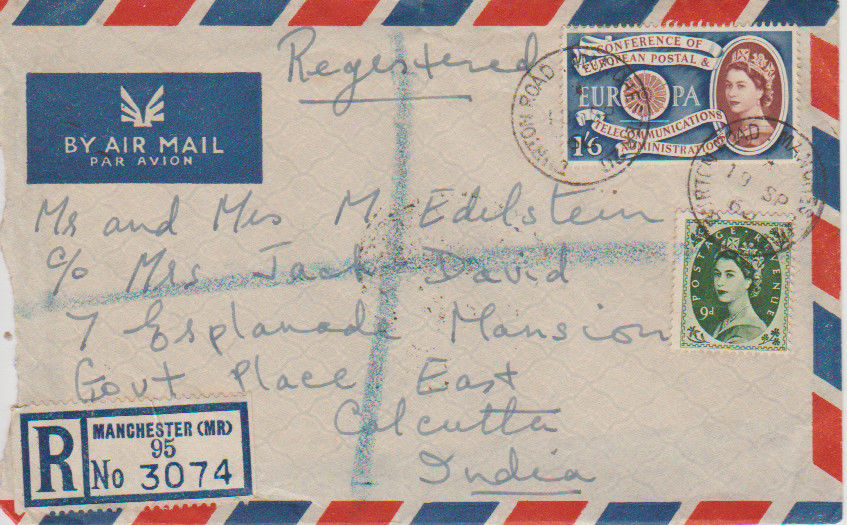 Registered
BY AIR MAIL
PAR AVION
CONFERENCE OF
EUROPEAN POSTAL &
EUROPA
TELECOMMUNICATIONS
ADMINISTRATIONS
1'6
BURTON ROAD
BURTON ROAD MANCHESTER
19 SP
60
POSTAGE REVENUE
9d
Mr and Mrs M. Edelstein
c/o Mrs Jack David
7 Esplanade Mansion
Govt Place East
Calcutta
India
R
MANCHESTER (MR)
95
No 3074